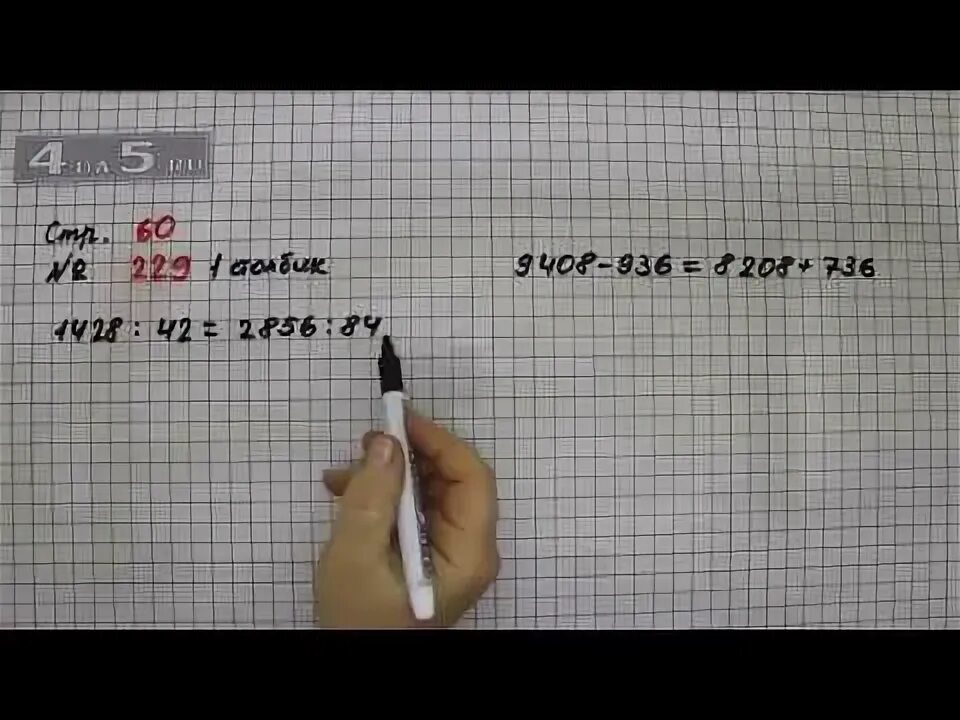 Стр. 60
№ 229 1 столбик
1428 : 42 = 2856 : 84
9408 - 936 = 8208 + 736